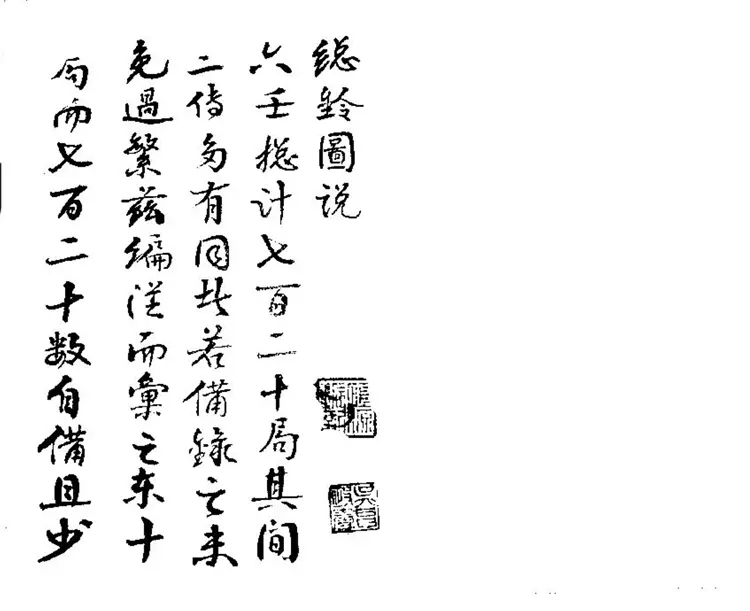 總鈐圖說
六壬總計七百二十局其間
二傳多有同若備錄之未
免過繁茲編從而彙之束十
局而七百二十数自備且少